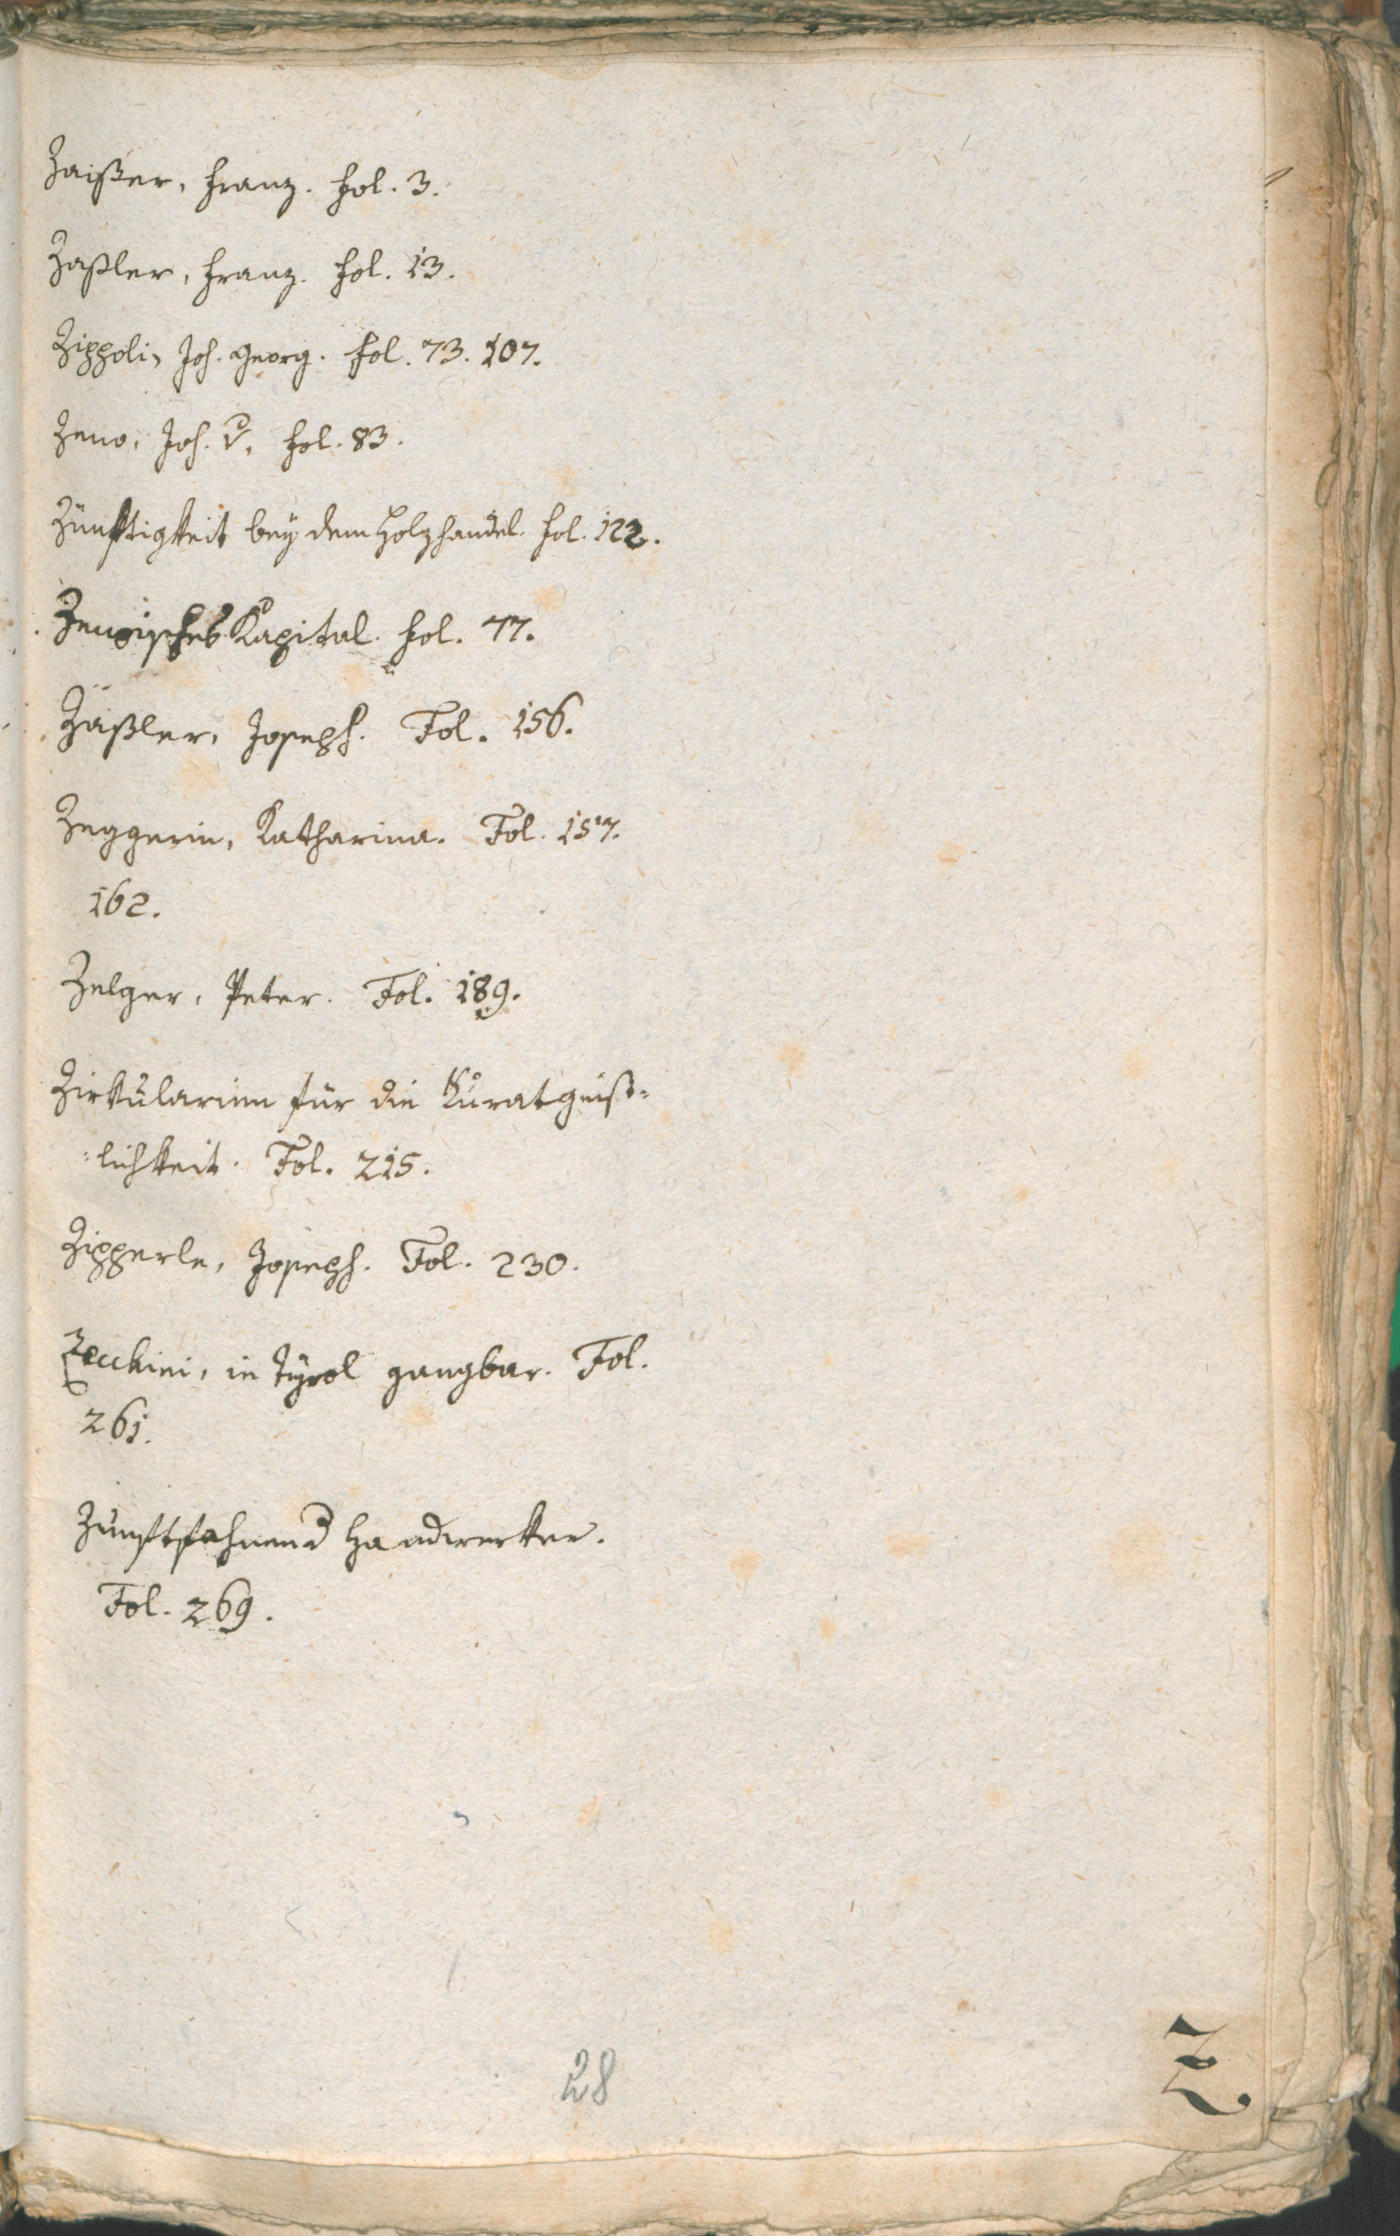 Zaißer, Franz. Fol. 3.
Zaßler, Franz. Fol. 13.
Zippoli, Joh. Georg. Fol. 73. 107.
Zeno, Joh. v. Fol. 83.
Zünftigkeit bey dem Holzhandel. Fol. 122.
Zenoisches Kapital. Fol. 77.
Zäßler, Joseph. Fol. 156.
Zeggerin, Katharina. Fol. 157.
162.
Zelger, Peter. Fol. 189.
Zirkularien für die Kuratgeist-
-lichkeit. Fol. 215.
Zipperle, Joseph. Fol. 230.
Zecchini, in Tyrol gangbar. Fol.
261.
Zunftfahnen d Handwerker.
Fol. 269.
28
Z.